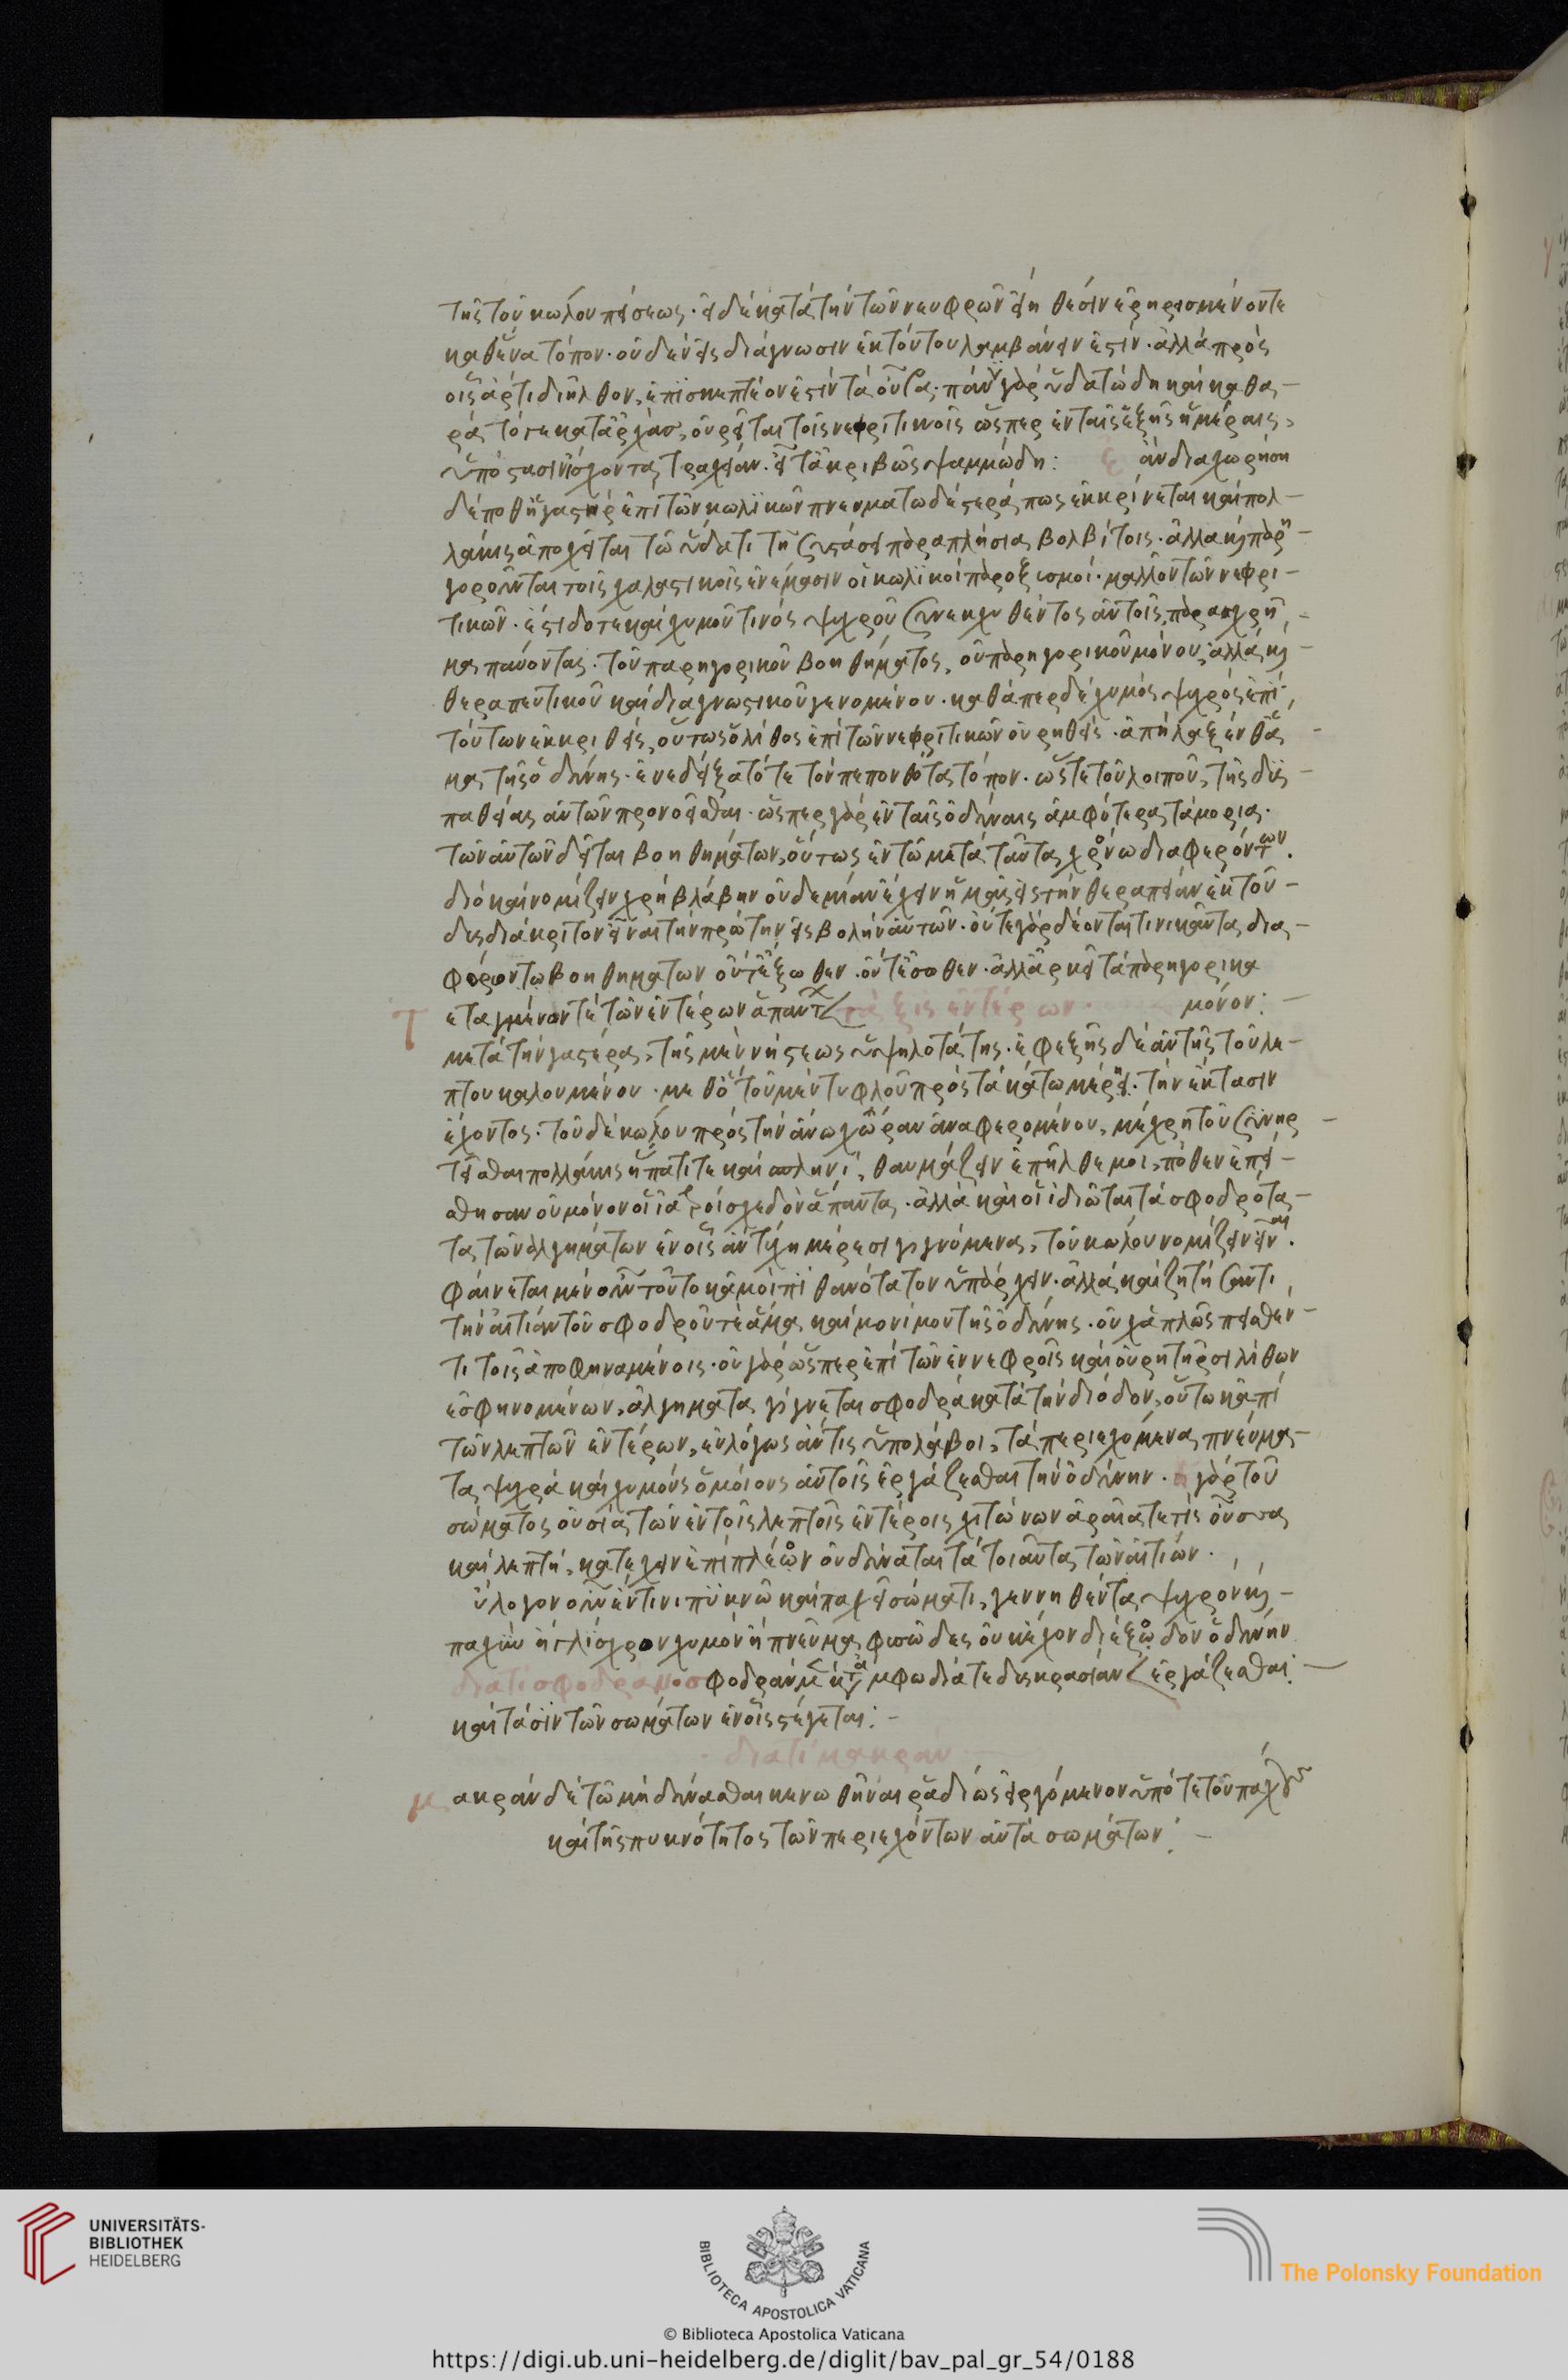 τῆς τοῦ κώλου πείσεως. εἰ δὲ κατὰ τὴν τῶν νεφρῶν εἴη θέσιν ἐρηρεισμένον τε
καθ' ἕνα τόπον. οὐδὲν εἰς διάγνωσιν ἐκ τούτου λαμβάνειν ἐστίν. ἀλλὰ πρὸς
οἷς ἄρτι διῆλθον, ἐπισκεπτέον ἐστὶν τὰ οὖρα. πάνυ γὰρ ὑδατώδη καὶ καθα-
ρὰ τό γε κατ' ἀρχὰς, οὐρεῖται τοῖς νεφριτικοῖς ὥσπερ ἐν ταῖς ἑξῆς ἡμέραις,
ὑπόστασιν ἴσχοντα τραχεῖαν. εἶτ' ἀκριβῶς ψαμμώδη: ἂν διαχωρήση
δέ ποθ' ἡ γαστὴρ ἐπὶ τῶν κωλικῶν πνευματωδέστερά πως ἐκκρίνεται καὶ πολ-
λάκις ἐποχεῖται τῷ ὕδατι τῇ συστάσει παραπλήσια βολβίτοις. ἀλλὰ καὶ παρη-
γοροῦνται τοῖς χαλαστικοῖς ἐνέμασιν οἱ κωλικοὶ παροξυσμοὶ. μᾶλλον τῶν νεφρι-
τικῶν. ἔστι δ' ὅτε καὶ χυμοῦ τινὸς ψυχροῦ συνεκχυθέντος αὐτοῖς, παραχρῆ-
μα παύονται. τοῦ παρηγορικοῦ βοηθήματος, οὐ παρηγορικοῦ μόνου, ἀλλὰ καὶ
θεραπευτικοῦ καὶ διαγνωστικοῦ γενομένου. καθάπερ δὲ χυμὸς ψυχρὸς ἐπὶ
τούτων ἐκκριθεὶς, οὕτως ὁ λίθος ἐπὶ τῶν νεφριτικῶν οὐρηθεὶς.
τῆς ὀδύνης. ἐνεδείξατό τε τὸν πεπονθότα τόπον. ὥστε τοῦ λοιποῦ, τῆς δυσ-
παθείας αὐτῶν προνοεῖσθαι. ὥσπερ γὰρ ἐν ταῖς ὀδύναις ἀμφότερα τὰ μόρια.
τῶν αὐτῶν δεῖται βοηθημάτων, οὕτως ἐν τῷ μετὰ ταῦτα χρόνω διαφερόντων.
διὸ καὶ νομίζειν χρὴ βλάβην οὐδεμίαν ἔχειν ἡμᾶς εἰς τὴν θεραπείαν ἐκ τοῦ
δυσδιάκριτον εἶναι τὴν πρώτην εἰσβολὴν αὐτῶν. οὔτε γὰρ δέονταί τινι κατὰ δια-
φέροντων βοηθημάτων οὔτ' ἔξωθεν. οὔτ' ἔσωθεν. ἀλλ' ἀρκεῖ τὰ παρηγορικὰ
μόνον:
Τ εταγμένων τε τῶν ἐντέρων ἁπάντων τάξις ἐντέρων.
μετὰ τὴν γαστέρα, τῆς μὲν νήστεως ὑψηλοτάτης. ἐφεξῆς δὲ αὐτῆς τοῦ λε-
πτοῦ καλουμένου. μεθ' ὃ τοῦ μὲν τυφλοῦ πρὸς τὰ κάτω μέρη. τὴν ἔκτασιν
ἔχοντος. τοῦ δὲ κώλου πρὸς τὴν ἄνω χώραν ἀναφερομένου, μέχρι τοῦ συνηρ-
τῆσθαι πολλάκις ἥπατί τε καὶ σπληνὶ, θαυμάζειν ἐπῆλθέ μοι, πόθεν ἐπεί-
σθησαν οὐ μόνον οἱ ἰατροὶ σχεδὸν ἅπαντες. ἀλλὰ καὶ οἱ ἰδιῶται τὰ σφοδρότα-
τα τῶν ἀλγημάτων ἐν οἷς ἂν τύχη μέρεσι γιγνόμενα, τοῦ κώλου νομίζειν εἶναι.
φαίνεται μὲν οὖν τοῦτο κἀμοὶ πιθανώτατον ὑπάρχειν. ἀλλὰ καὶ ζητήσαντι
τὴν αἰτίαν τοῦ σφοδροῦ τε ἅμα καὶ μονίμου τῆς ὀδύνης. οὐχ ἁπλῶς πεισθέν-
τι τοῖς ἀποφηναμένοις. οὐ γὰρ ὥσπερ ἐπὶ τῶν ἐν νεφροῖς καὶ οὐρητῆρσι λίθων
ἐσφηνομένων, ἀλγήματα γίγνεται σφοδρὰ κατὰ τὴν δίοδον, οὕτω κἀπὶ
τῶν λεπτῶν ἐντέρων, εὐλόγως ἄν τις ὑπολάβοι, τὰ περιεχόμενα πνεύμα-
τα ψυχρὰ καὶ χυμοὺς ὁμοίους αὐτοῖς ἐργάζεσθαι τὴν ὀδύνην. ἡ γὰρ τοῦ
σώματος οὐσία τῶν ἐν τοῖς λεπτοῖς ἐντέροις χιτώνων ἀραιά τέ τις οὖσα
καὶ λεπτὴ, κατέχειν ἐπὶ πλέον οὐ δύναται τὰ τοιαῦτα τῶν αἰτιῶν.
ὔλογον οὖν ἔν τινι πυκνῷ καὶ παχεῖ σώματι, γεννηθέντα ψυχρὸν καὶ
παχὺν ἢ γλίσχρον χυμὸν ἢ πνεῦμα φυσῶδες οὐκ ἔχον διέξοδον ὀδύνην
διατί σφοδρὰν σφοδρὰν μὲν κατ' ἄμφω διά τε δυσκρασίαν ἐργάζεσθαι:
καὶ τάσιν τῶν σωμάτων ἐν οἷς στέγεται:
διατί μακράν
μ ακρὰν δὲ τῷ μὴ δύνασθαι κενωθῆναι ῥαδίως εἰργόμενον ὑπό τε τοῦ πάχους
καὶ τῆς πυκνότητος τῶν περιεχόντων αὐτὰ σωμάτων:
UNIVERSITÄTS-
BIBLIOTHEK
HEIDELBERG
BIBLIOTECA APOSTOLICA VATICANA
The Polonsky Foundation
© Biblioteca Apostolica Vaticana
https://digi.ub.uni-heidelberg.de/diglit/bav_pal_gr_54/0188